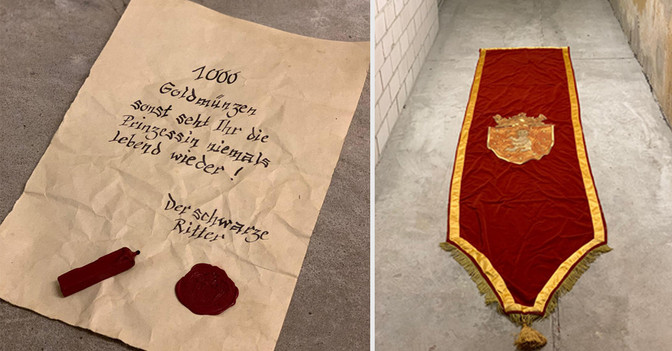 1000
Goldmünzen
sonst seht Ihr die
Prinzessin niemals
lebend wieder!
Der schwarze
Ritter